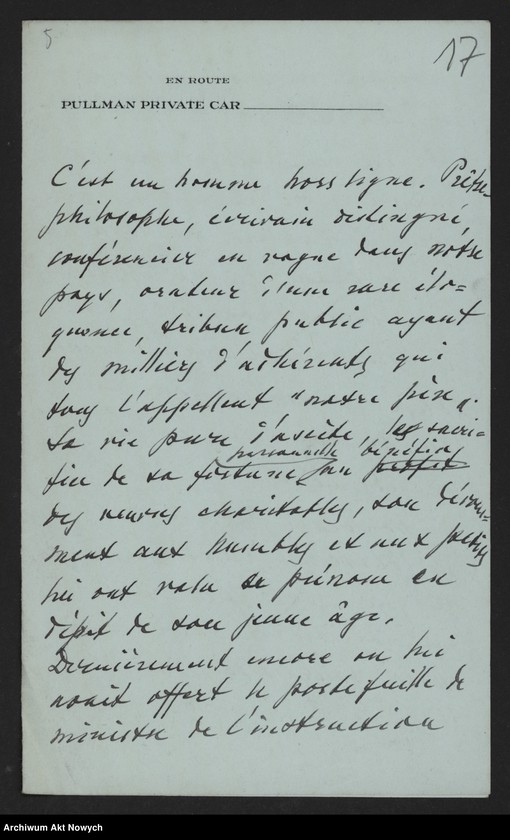 5
17
EN ROUTE
PULLMAN PRIVATE CAR
C'est un homme hors ligne. Prêtre
philosophe, écrivain distingué,
conférencier en vogue dans notre
pays, orateur d'une rare élo-
quence, tribun public ayant
des milliers d'adhérents qui
tous l'appellent "notre père".
Sa vie pure d'ascète, le sacri-
personnelle bénéfice
fice de sa fortune au profit
des œuvres charitables, son dévoue-
ment aux humbles et aux petits
lui ont valu ce prénom en
dépit de son jeune âge.
Dernièrement encore on lui
avait offert le portefeuille de
ministre de l'instruction
Archiwum Akt Nowych